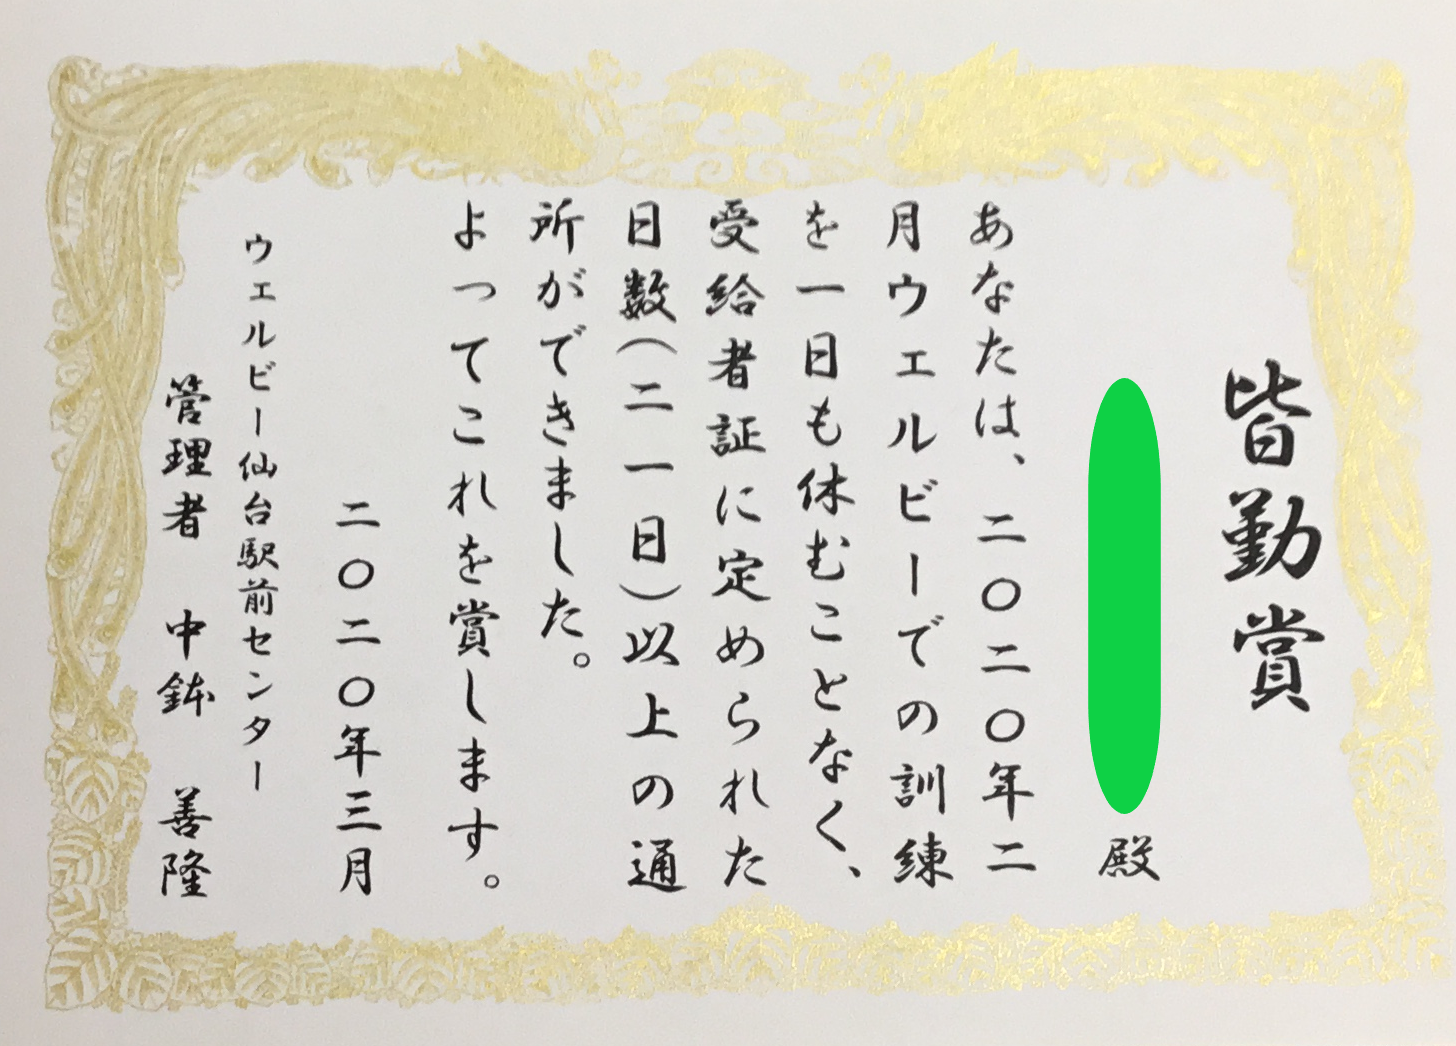 皆勤賞
殿
あなたは、二〇二〇年二
月ウェルビーでの訓練
を一日も休むことなく、
受給者証に定められた
日数(二一日)以上の通
所ができました。
よってこれを賞します。
二〇二〇年三月
ウェルビー仙台駅前センター
管理者 中鉢 善隆